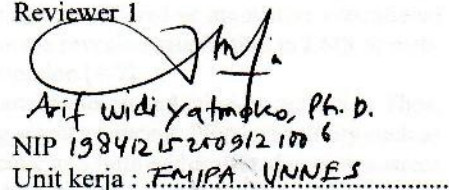 Reviewer 1
Arif Widiyatmoko, Ph. D.
NIP 198412152009121006
Unit kerja : FMIPA UNNES